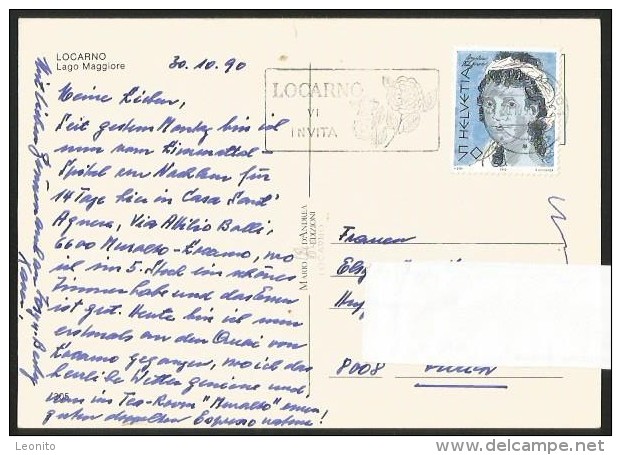 LOCARNO
Lago Maggiore
30.10.90
LOCARNO
VI
INVITA
HELVETIA
70
Meine Lieben,
Seit gestern Montag bin ich
nun vom Limmattal-
Spital zur Nachkur für
14 Tage hier in Casa Sant'
Agnese, Via Attilio Balli,
6600 Muralto-Locarno, wo
ich im 5. Stock ein schönes
Zimmer habe und das Essen
ist gut. Heute bin ich nun
erstmals an den Quai von
Locarno gegangen, wo ich das
herrliche Wetter geniesse und
nun im Tea-Room "Muralto" einen
guten doppelten Espresso nehme!
Mit lieben Grüssen
MARIO D'ANDREA
EDIZIONI
LOCARNO
Frauen
8008
1305
Leonito
www.delcampe.net